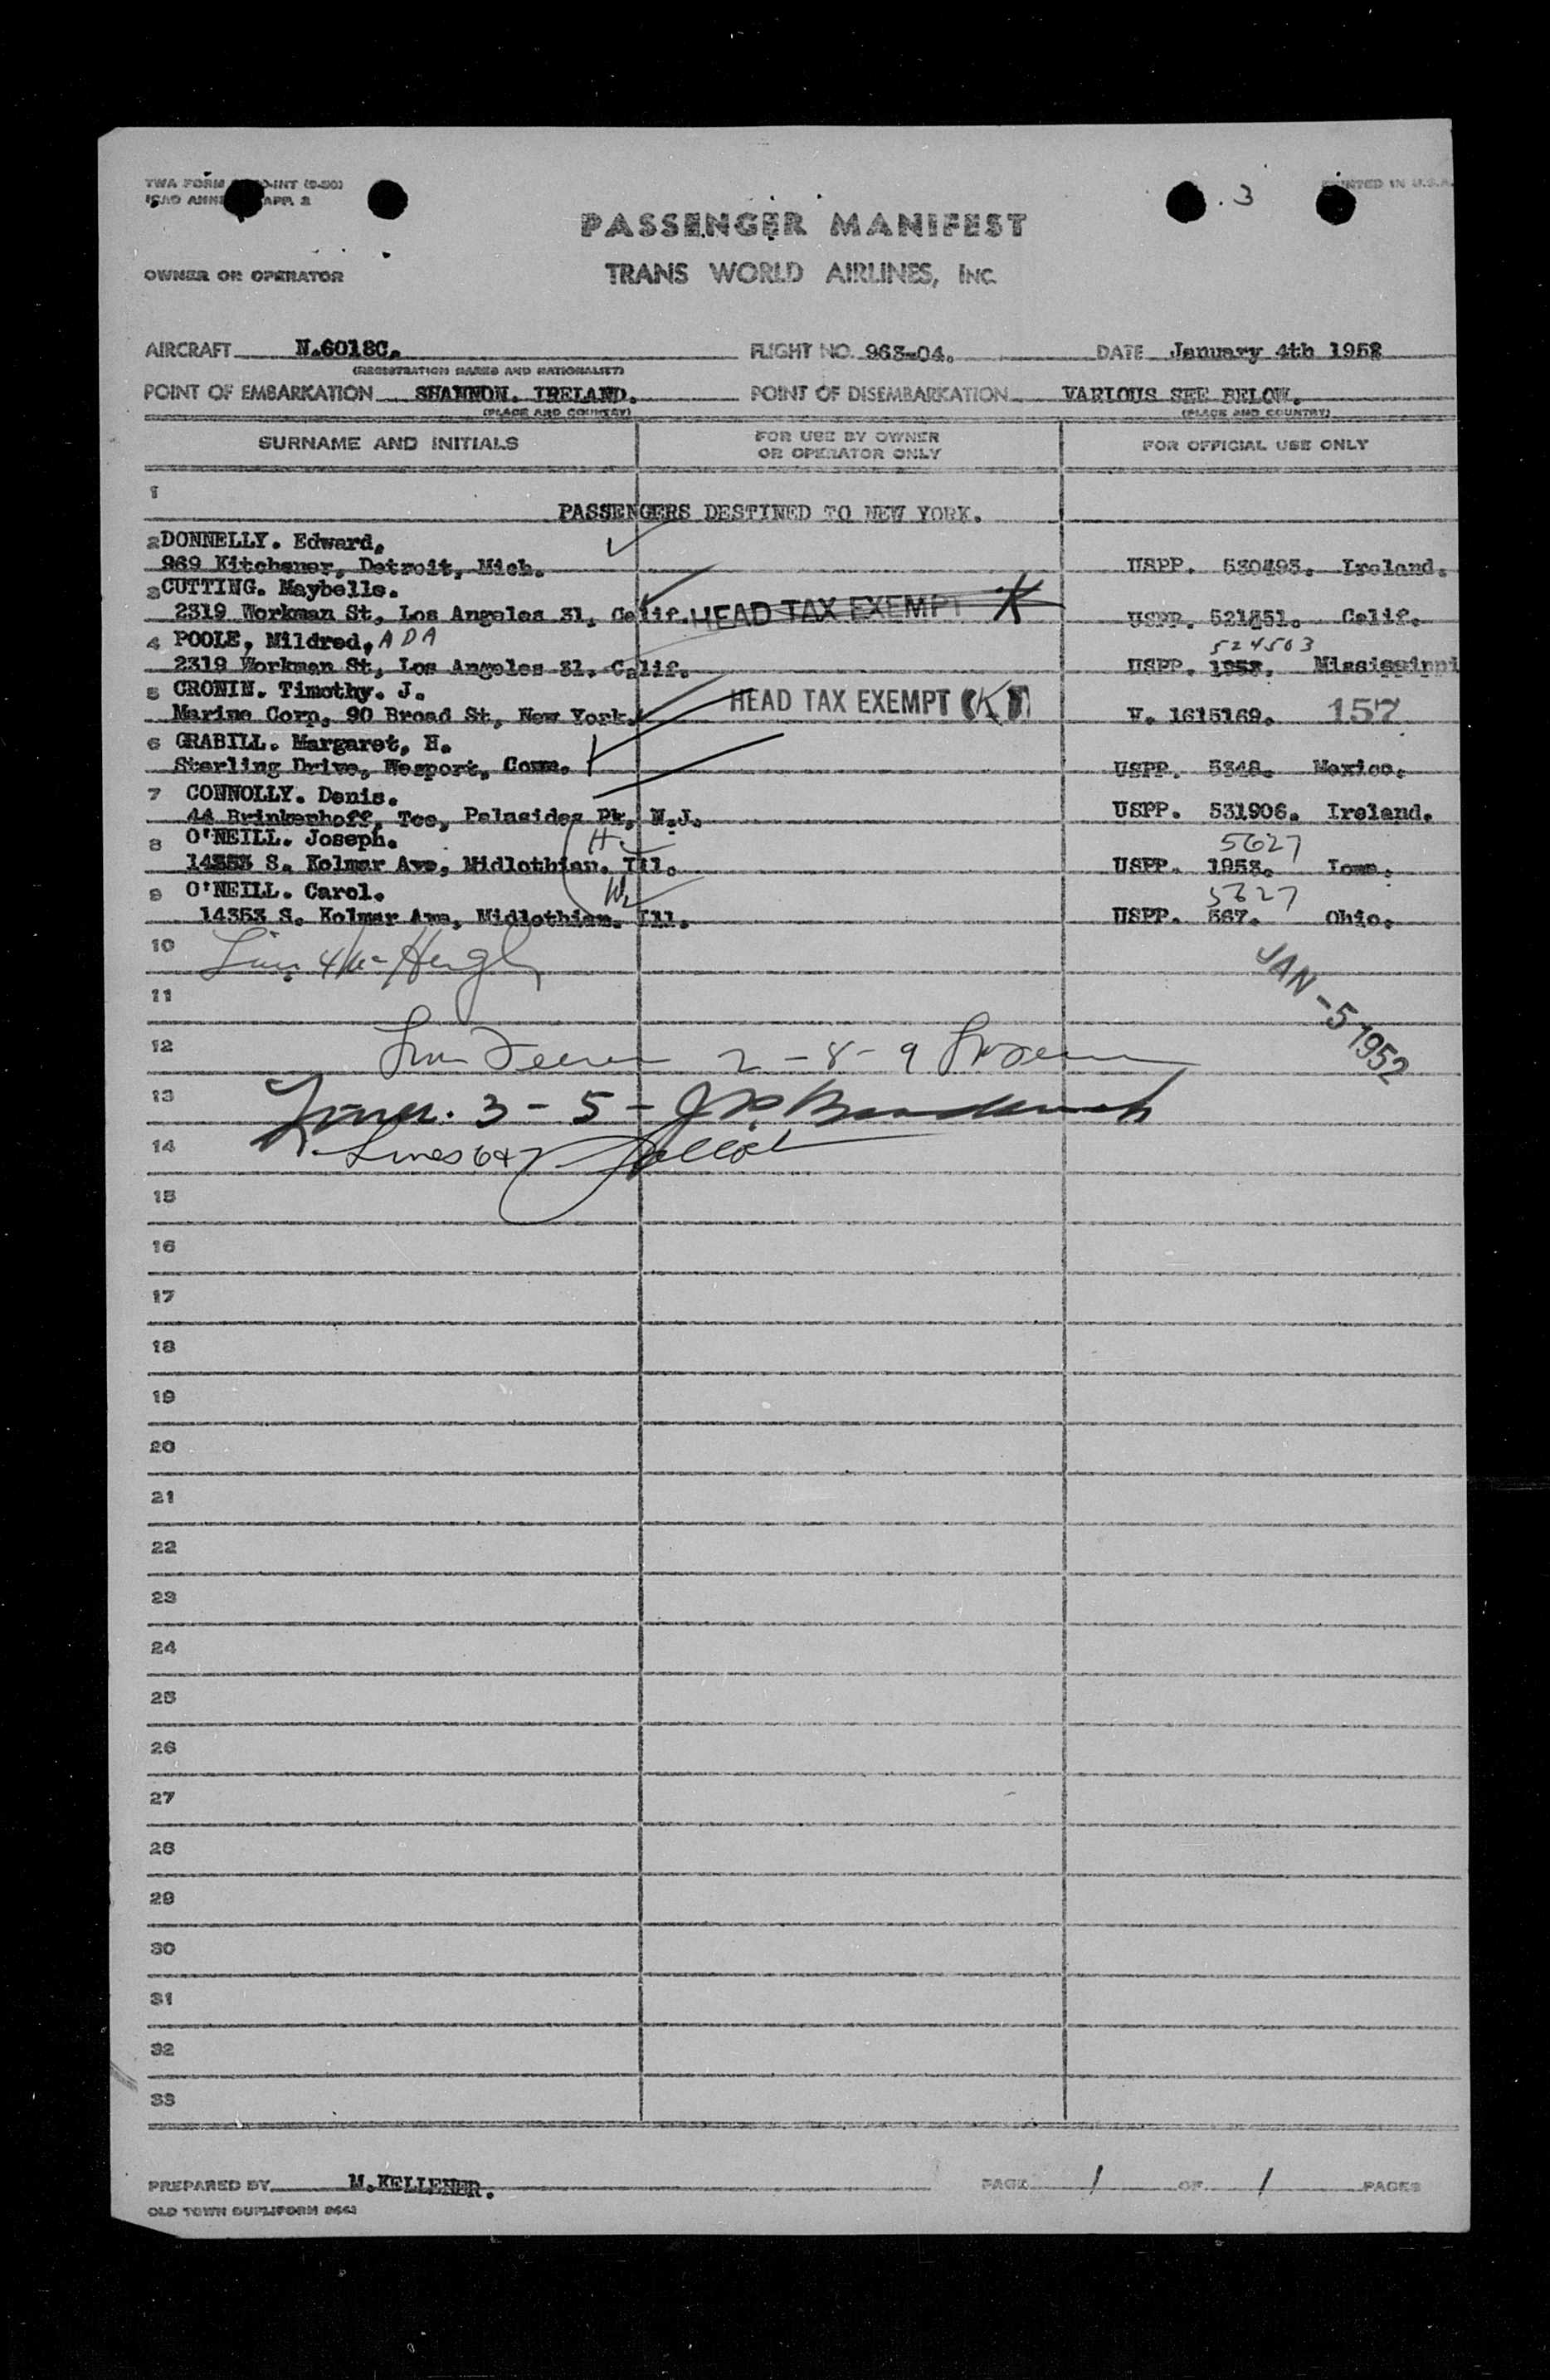 TWA FORM INT (9-50)
ICAO ANNE APP. 2
. 3
PRINTED IN U.S.A.
PASSENGER MANIFEST
OWNER OR OPERATOR
TRANS WORLD AIRLINES, INC.
AIRCRAFT N.6018C. FLIGHT NO. 963-04. DATE January 4th 1952
(REGISTRATION MARKS AND NATIONALITY)
POINT OF EMBARKATION SHANNON. IRELAND. POINT OF DISEMBARKATION VARIOUS SEE BELOW.
(PLACE AND COUNTRY) (PLACE AND COUNTRY)
SURNAME AND INITIALS FOR USE BY OWNER OR OPERATOR ONLY FOR OFFICIAL USE ONLY
1
PASSENGERS DESTINED TO NEW YORK.
2 DONNELLY. Edward,
969 Kitchener, Detroit, Mich. USPP. 530493. Ireland.
3 CUTTING. Maybelle.
2319 Workman St, Los Angeles 31, Calif. HEAD TAX EXEMPT K USPP. 521851. Calif.
4 POOLE, Mildred, ADA 524503
2319 Workman St, Los Angeles 31. Calif. USPP. 1953. Mississippi
5 CRONIN. Timothy. J.
Marine Corp, 90 Broad St, New York. HEAD TAX EXEMPT (K) V. 1615169. 157
6 GRABILL. Margaret, H.
Sterling Drive, Wesport, Conn. USPP. 5348. Mexico.
7 CONNOLLY. Denis.
44 Brinkenhoff, Tce, Palasides Pk, N.J. USPP. 531906. Ireland.
8 O'NEILL. Joseph. H. 5627
14353 S. Kolmar Ave, Midlothian. Ill. USPP. 1953. Iowa.
9 O'NEILL. Carol. W. 5627
14353 S. Kolmar Ave, Midlothian. Ill. USPP. 567. Ohio.
10
JAN -5 1952
11
12 2 - 8 - 9
13 3 - 5 -
14 Lines 6 & 7
15
16
17
18
19
20
21
22
23
24
25
26
27
28
29
30
31
32
33
PREPARED BY M.KELLEHER. PAGE 1 OF 1 PAGES
OLD TOWN DUPLIFORM